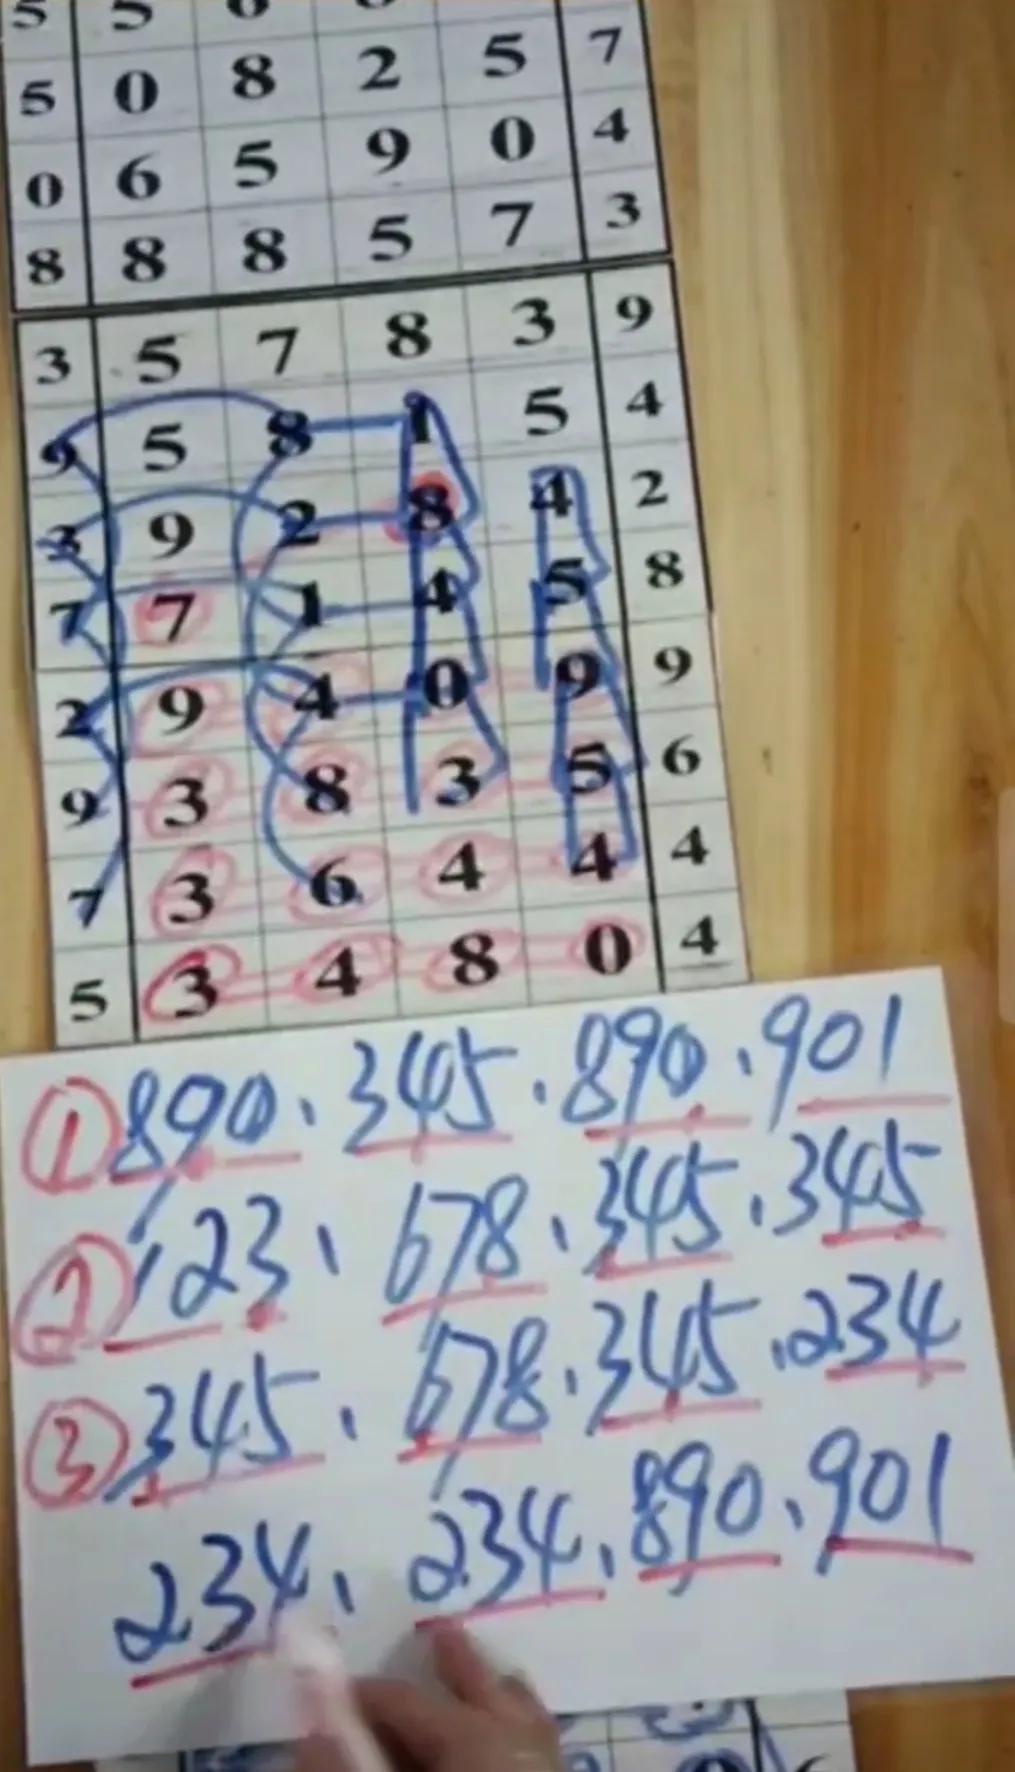 5 0 8 2 5 7
0 6 5 9 0 4
8 8 8 5 7 3
3 5 7 8 3 9
9 5 8 1 5 4
3 9 2 8 4 2
7 7 1 4 5 8
2 9 4 0 9 9
9 3 8 3 5 6
7 3 6 4 4 4
5 3 4 8 0 4
① 890、345、890、901
② 123、678、345、345
③ 345、678、345、234
234、234、890、901